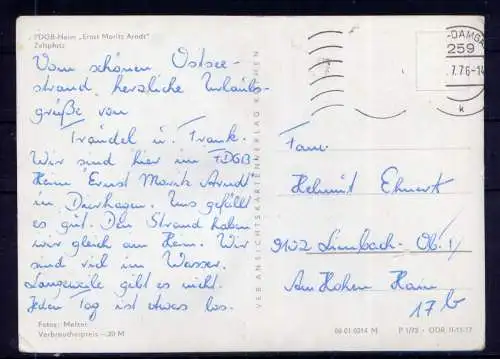 FDGB-Heim „Ernst Moritz Arndt"
Zeltplatz
Vom schönen Ostsee-
strand herzliche Urlaubs-
grüße von
Traudel u. Frank.
Wir sind hier im FDGB
Heim "Ernst Moritz Arndt"
in Dierhagen. Uns gefällt
es gut. Den Strand haben
wir gleich am Heim. Wir
sind viel im Wasser.
Langeweile gibt es nicht.
Jeden Tag ist etwas los.
Fotos: Melzer
Verbraucherpreis -,20 M
VEB ANSICHTSKARTENVERLAG
-DAMGA
259
7.7.6-14
k
Fam.
Helmut Ehnert
9102 Limbach-Ob. 1
Am Hohen Hain
17b
06 01 0214 M P 1/72 · DDR